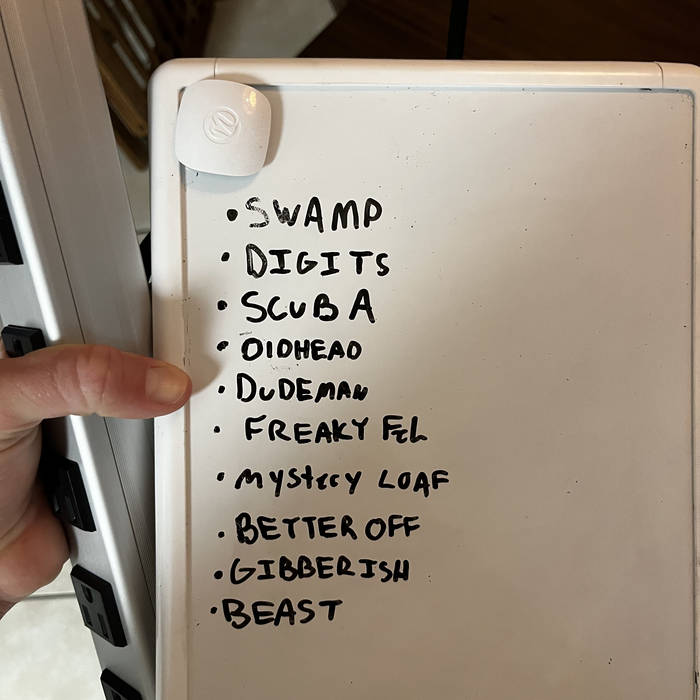 • SWAMP
• DIGITS
• SCUBA
•
• DUDEMAN
• FREAKY
• MYStery LOAF
• BETTER OFF
• GIBBERISH
• BEAST